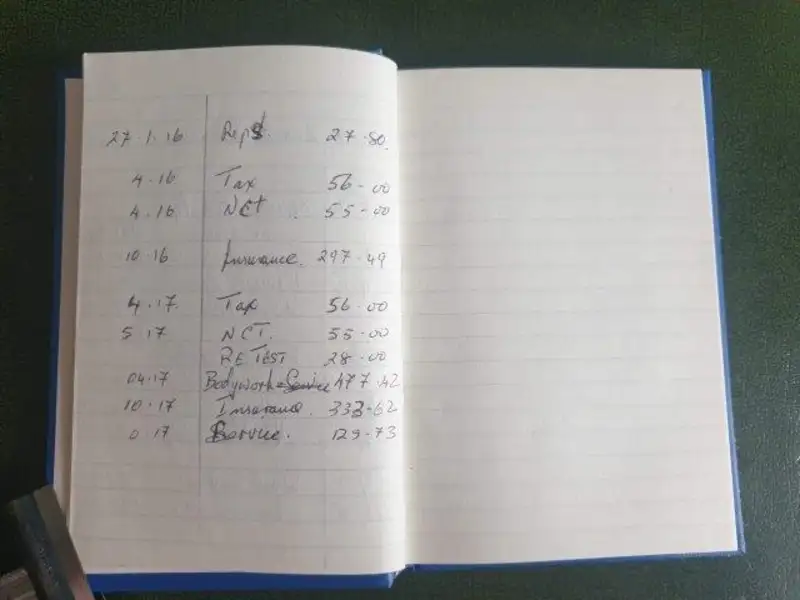 27.1.16 27.80
4.16 Tax 56-00
4.16 NCT 55-00
10.16 Insurance. 297-49
4.17. Tax 56-00
5.17 NCT. 55-00
RETEST 28-00
04.17 Bodywork 477-42
10.17 Insurance. 333-62
0 17 Service. 129-73